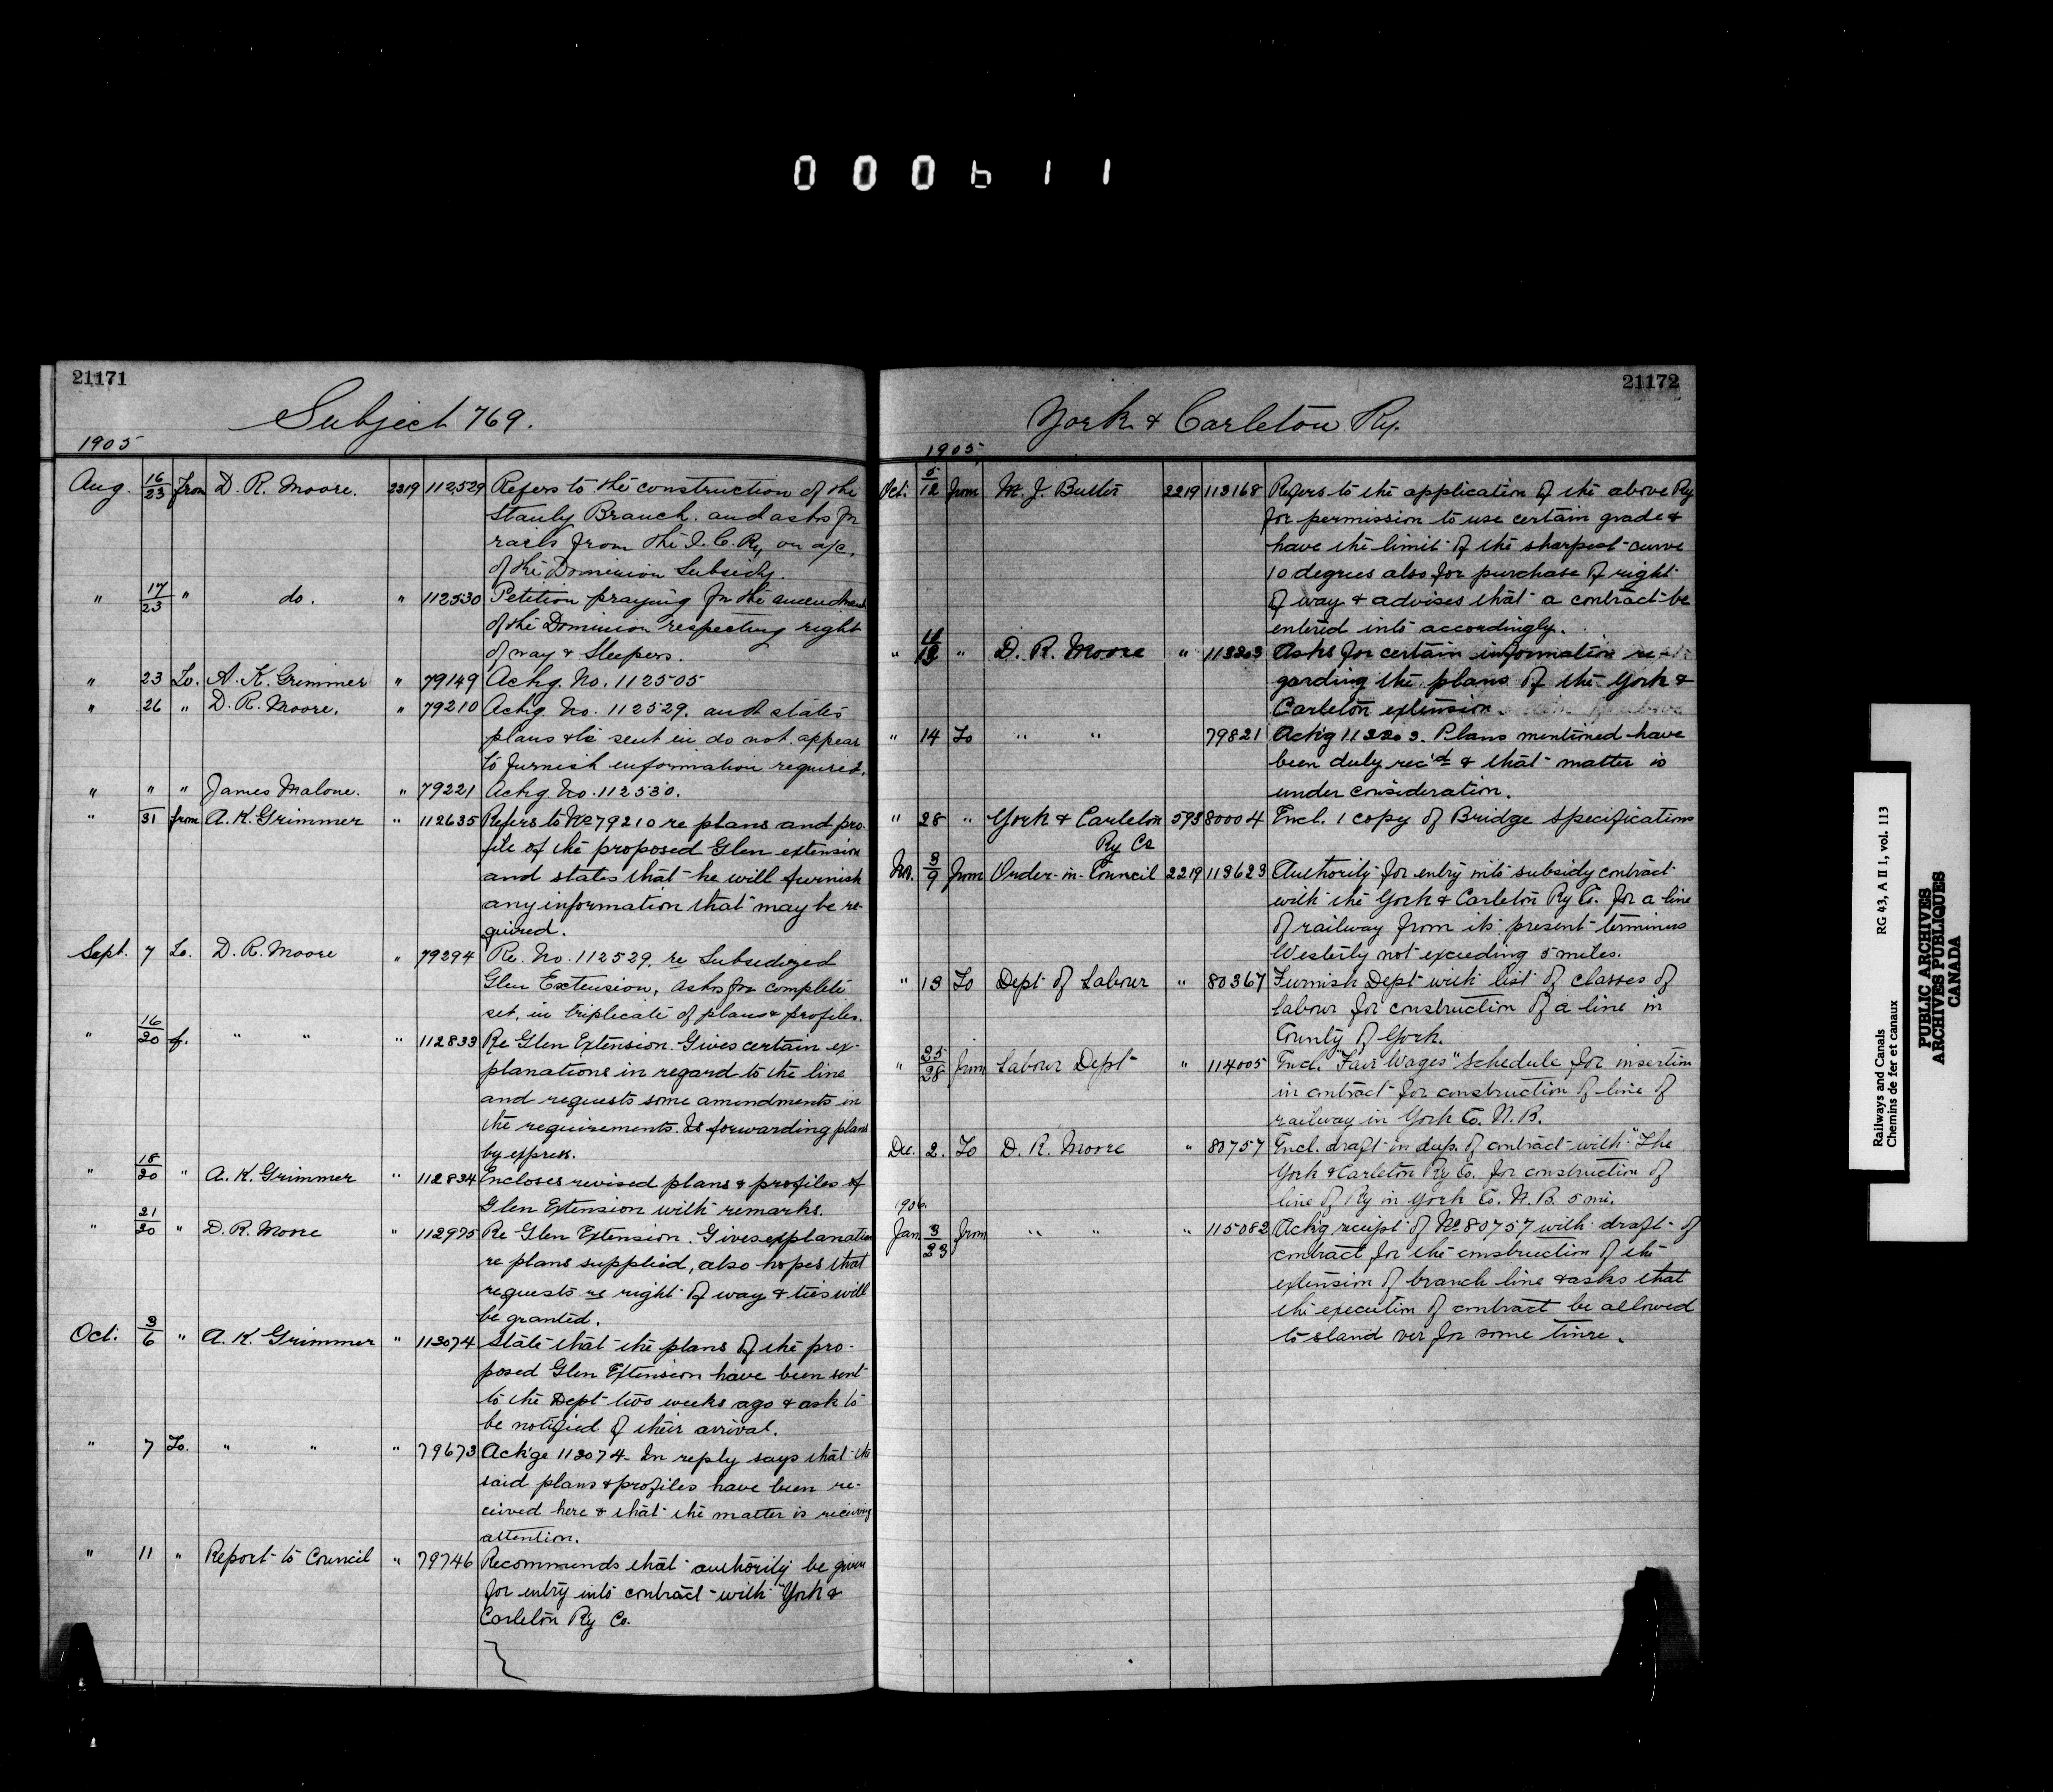 000611
21171
Subject 769.
1905
Aug. 16/23 from D. R. Moore. 2219 112529 Refers to the construction of the
Stanly Branch. and asks for
rails from the I. C. Ry on a/c.
of the Dominion Subsidy.
" 17/23 " do. " 112530 Petition praying for the amendment
of the Dominion respecting right
of way & Sleepers.
" 23 To. A. K. Grimmer " 79149 Ackg. No. 112505
" 26 " D. R. Moore. " 79210 Ackg. No. 112529. and states
plans &c sent in do not appear
to furnish information required.
" " " James Malone. " 79221 Ackg. No. 112530.
" 31 from A. K. Grimmer " 112635 Refers to No 79210 re plans and pro-
file of the proposed Glen extension
and states that he will furnish
any information that may be re-
quired.
Sept. 7 To. D. R. Moore " 79294 Re. No. 112529. re Subsidized
Glen Extension, Asks for complete
set, in triplicate of plans & profiles.
" 16/20 f. " " " 112833 Re Glen Extension. Gives certain ex-
planations in regard to the line
and requests some amendments in
the requirements. Is forwarding plans
by express.
" 18/20 " A. K. Grimmer " 112834 Encloses revised plans & profiles of
Glen Extension with remarks.
" 21/20 " D. R. Moore " 112975 Re Glen Extension. Gives explanation
re plans supplied, also hopes that
requests re right of way & ties will
be granted.
Oct. 3/6 " A. K. Grimmer " 113074 State that the plans of the pro-
posed Glen Extension have been sent
to the Dept two weeks ago & ask to
be notified of their arrival.
" 7 To. " " " 79673 Ackge 113074. In reply says that the
said plans & profiles have been re-
ceived here & that the matter is receiving
attention.
" 11 " Report to Council " 79746 Recommends that authority be given
for entry into contract with "York &
Carleton Ry Co.
21172
York & Carleton Ry.
1905
Oct. 5/12 from M. J. Butler 2219 113168 Refers to the application of the above Ry
for permission to use certain grade &
have the limit of the sharpest curve
10 degrees also for purchase of right
of way & advises that a contract be
entered into accordingly.
" 11/12 " D. R. Moore " 113203 Asks for certain information re-
garding the plans of the York &
Carleton extension
" 14 To " " 79821 Ackg 113203. Plans mentioned have
been duly rec'd & that matter is
under consideration.
" 28 " York & Carleton 593 80004 Encl. 1 copy of Bridge Specifications
Ry Co
Nov. 3/9 from Order-in-Council 2219 113623 Authority for entry into subsidy contract
with the York & Carleton Ry Co. for a line
of railway from its present terminus
Westerly not exceeding 5 miles.
" 13 To Dept of Labour " 80367 Furnish Dept with list of classes of
labour for construction of a line in
County of York.
" 25/28 from Labour Dept " 114005 Encl. "Fair Wages" Schedule for insertion
in contract for construction of line of
railway in York Co. N. B.
Dec. 2. To D. R. Moore " 80757 Encl. draft in dup. of contract with "The
York & Carleton Ry Co. for construction of
line of Ry in York Co. N. B. 5 mi.
1906.
Jan 3/23 from " " " 115082 Ackg receipt of No 80757 with draft of
contract for the construction of the
extension of branch line & asks that
the execution of contract be allowed
to stand over for some time.
Railways and Canals RG 43, A II 1, vol. 113
Chemins de fer et canaux
PUBLIC ARCHIVES
ARCHIVES PUBLIQUES
CANADA